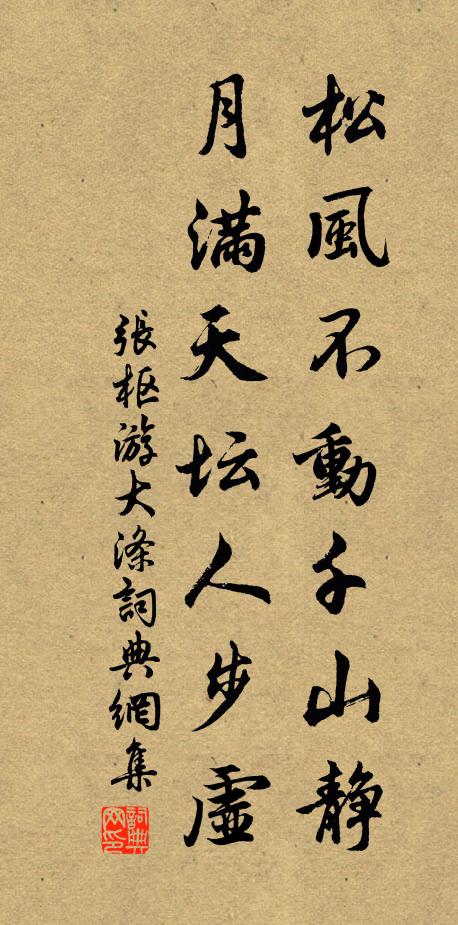 松風不動千山静
月滿天坛人步虛
張枢游大滌詞典網集
詞典
网印